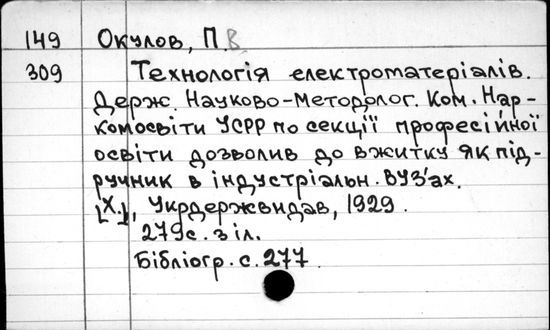 149 Окулов, П.В
309 Технологія електроматеріалів.
Держ. Науково-Методолог. Ком. Нар-
комосвіти УСРР по секції професійної
освіти дозволив до вжитку як під-
ручник в індустріальн. ВУЗ'ах.
[Х.], Укрдержвидав, 1929.
279с. з іл.
Бібліогр. с. 277